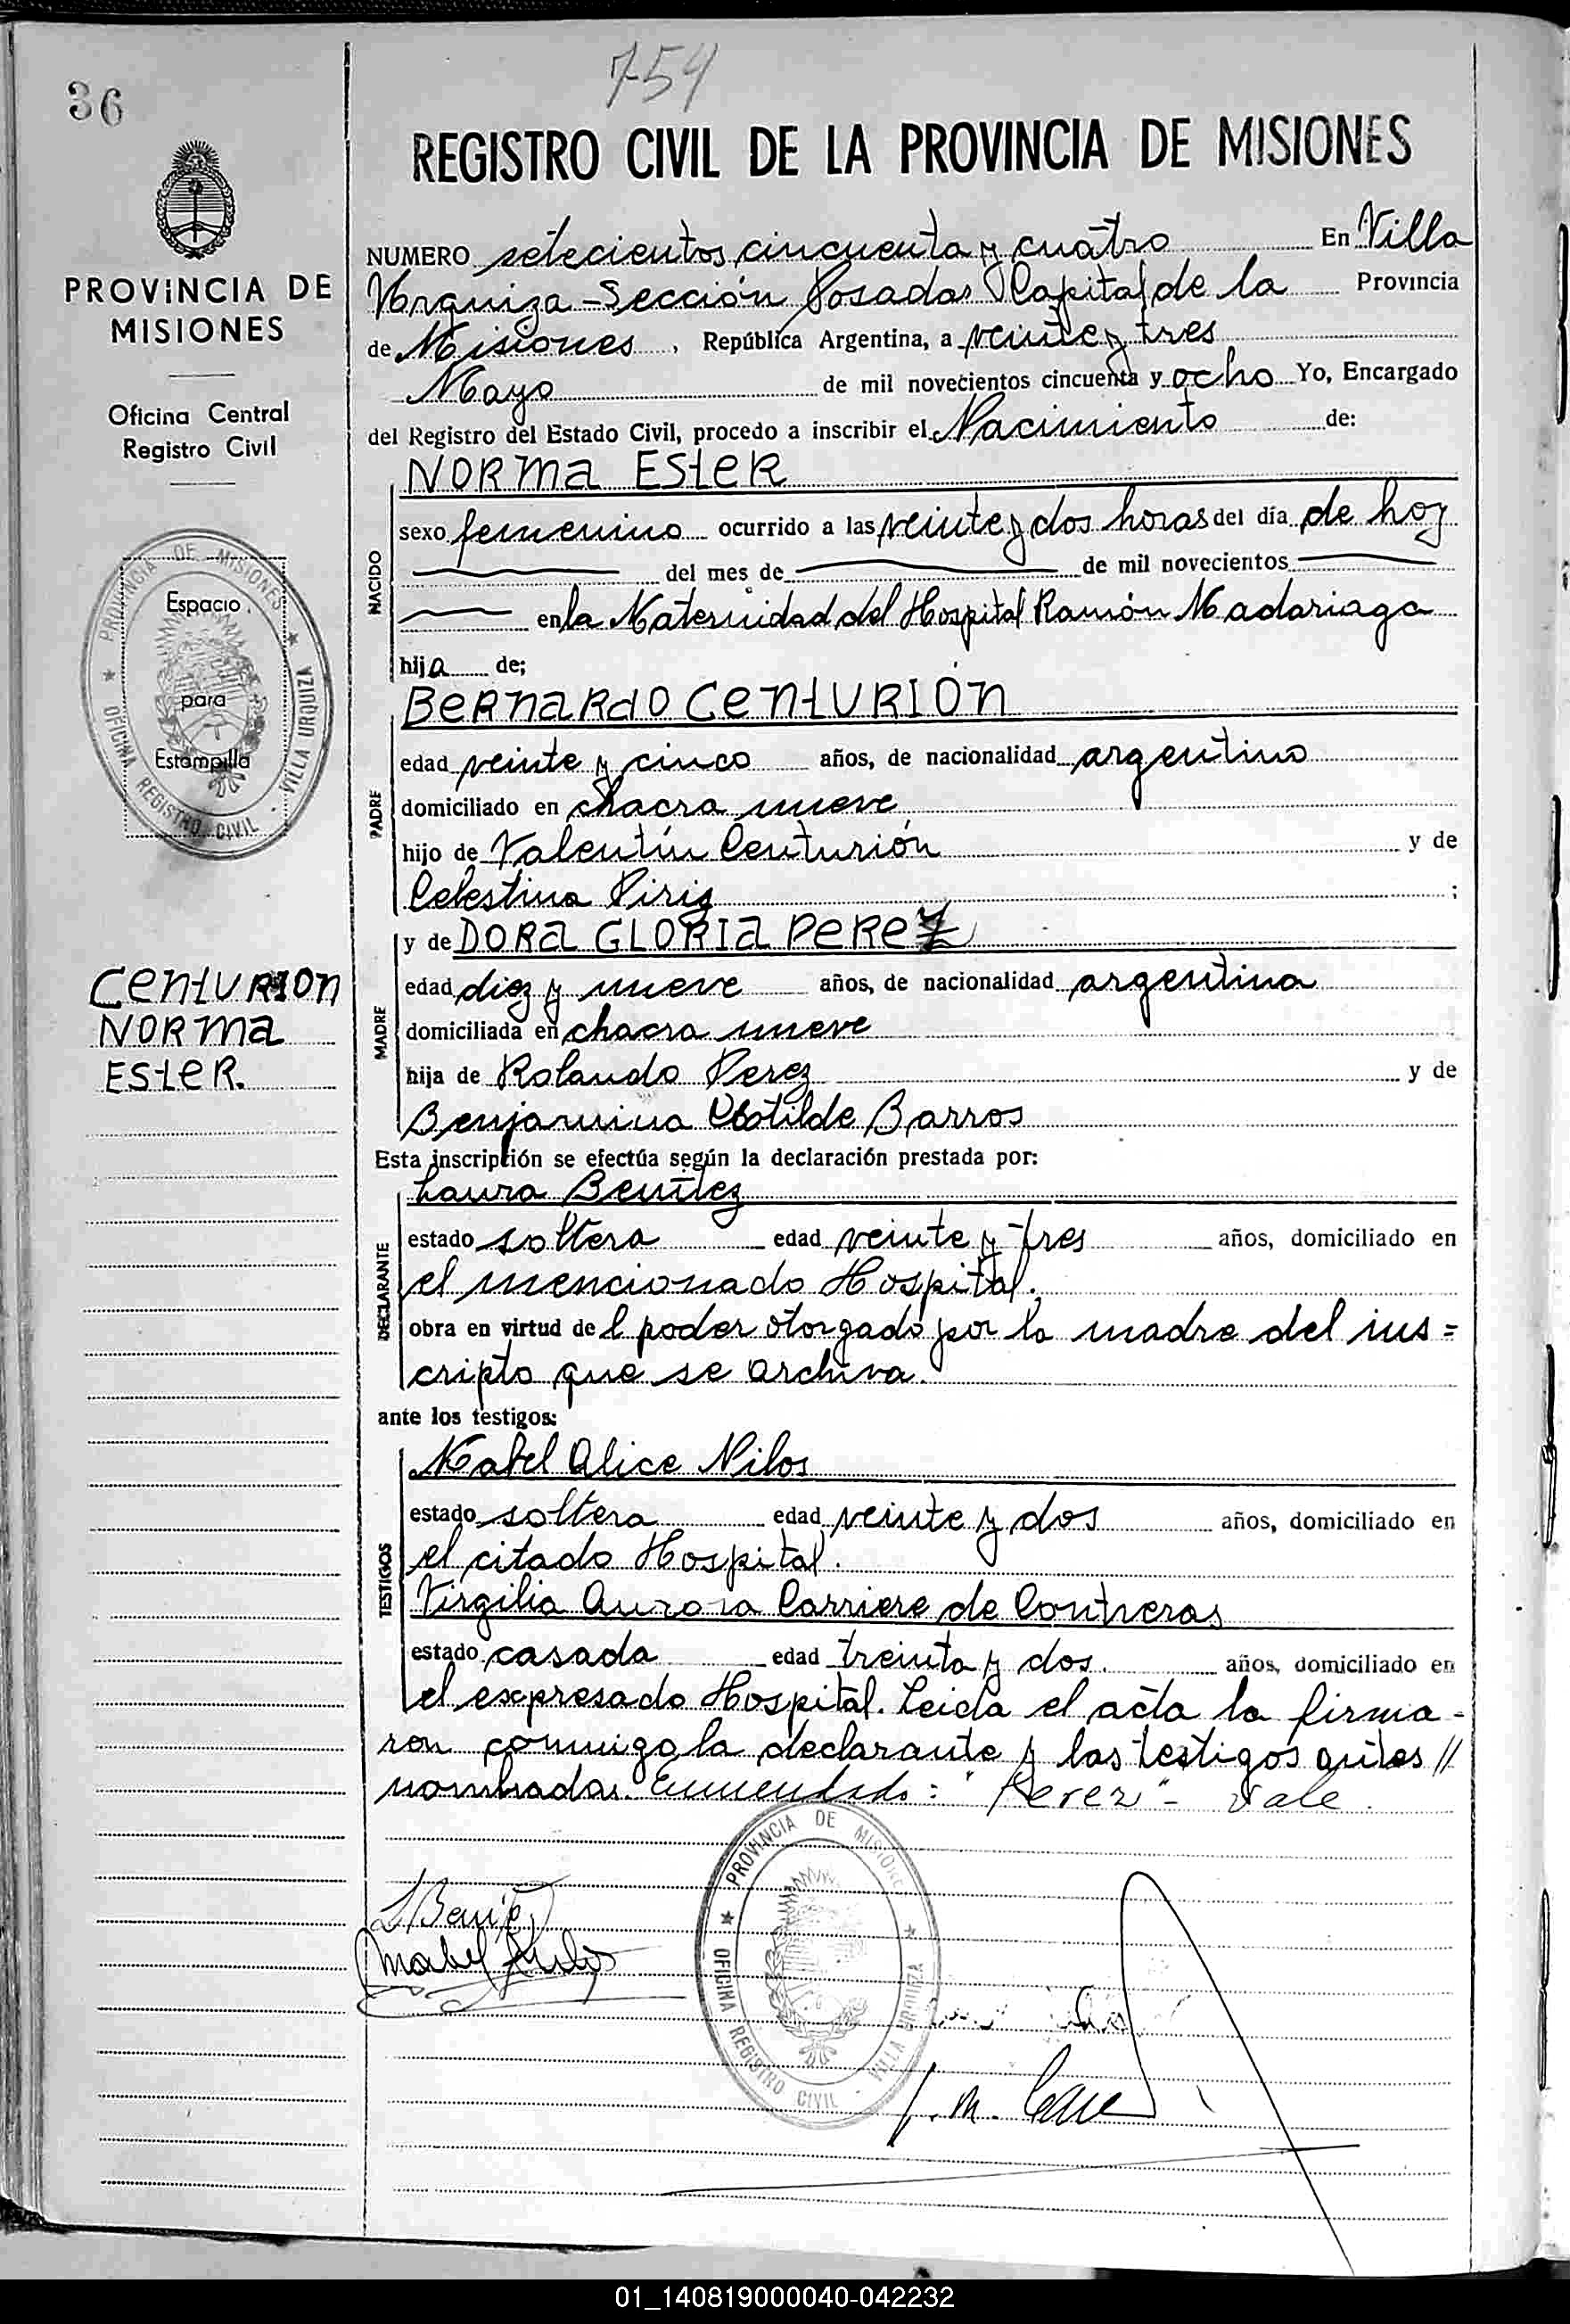 36
754
REGISTRO CIVIL DE LA PROVINCIA DE MISIONES
PROVINCIA DE
MISIONES
Oficina Central
Registro Civil
PROVINCIA DE MISIONES
OFICINA REGISTRO CIVIL - VILLA URQUIZA
Espacio
para
Estampilla
CENTURION
NORMA
ESTER.
NUMERO setecientos cincuenta y cuatro En Villa
Urquiza - Sección Posadas Capital de la Provincia
de Misiones, República Argentina, a veinte y tres
Mayo de mil novecientos cincuenta y ocho Yo, Encargado
del Registro del Estado Civil, procedo a inscribir el Nacimiento de:
NACIDO
NORMA ESTER
sexo femenino ocurrido a las veinte y dos horas del día de hoy
del mes de de mil novecientos
en la Maternidad del Hospital Ramón Madariaga
hija de;
PADRE
BERNARDO CENTURIÓN
edad veinte y cinco años, de nacionalidad argentino
domiciliado en chacra nueve
hijo de Valentín Centurión y de
Celestina Piris ;
MADRE
y de DORA GLORIA PEREZ
edad diez y nueve años, de nacionalidad argentina
domiciliada en chacra nueve
hija de Rolando Perez y de
Benjamina Clotilde Barros
Esta inscripción se efectúa según la declaración prestada por:
DECLARANTE
Laura Benítez
estado soltera edad veinte y tres años, domiciliado en
el mencionado Hospital.
obra en virtud del poder otorgado por la madre del ins=
cripto que se archiva.
ante los testigos:
TESTIGOS
Mabel Alice Milos
estado soltera edad veinte y dos años, domiciliado en
el citado Hospital.
Virgilia Aurora Carriere de Contreras
estado casada edad treinta y dos. años, domiciliado en
el expresado Hospital. Leida el acta la firma-
ron conmigo la declarante y las testigos antes //
nombradas. Enmendado: "Perez" - Vale.
L Benítez
PROVINCIA DE MISIONES
OFICINA REGISTRO CIVIL - VILLA URQUIZA
01_140819000040-042232